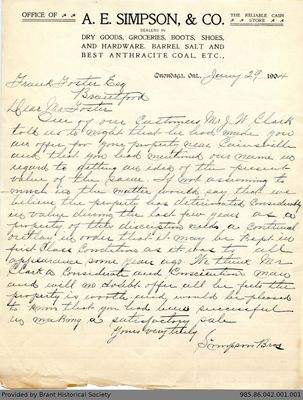 OFFICE OF
A. E. SIMPSON, & CO.
THE RELIABLE CASH
STORE
DEALERS IN
DRY GOODS, GROCERIES, BOOTS, SHOES,
AND HARDWARE. BARREL SALT AND
BEST ANTHRACITE COAL, ETC.,
Onondaga, Ont., Jany 29 1904
Frank Foster Esq
Brantford
Dear Mr Foster
One of our Customers Mr. J. W. Clark
told us to night that he had made you
an offer for your property near Cainsville
and that you had mentioned our name in
regard to getting an idea of the present
value of the same. Not assuming to
much in the matter would say that we
believe the property has deteriorated Considerably
in value during the last few years as a
property of this description needs a continual
in order that it may be kept in
first Class Condition as it was to all
appearance some years ago. We think Mr
Clark a Considerate and Conscientious man
and will no doubt offer all he feels the
property is worth and would be pleased
to know that you had been successful
in making a satisfactory sale
Yours very truly
Simpson Bros
Provided by Brant Historical Society
985.86.042.001.001